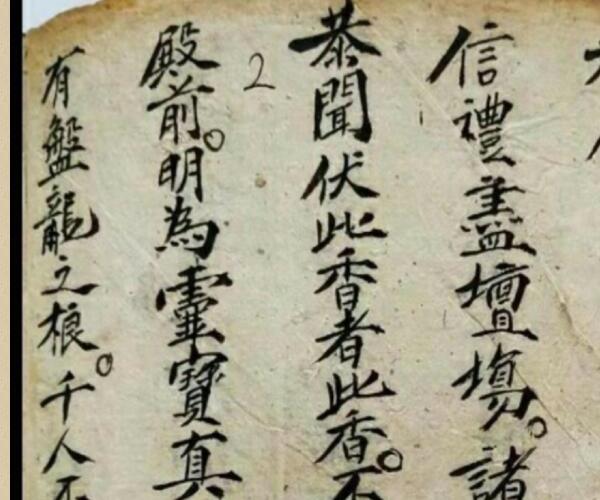 信禮盡壇場。諸
恭聞伏此香者此香。不
2
殿前。明為靈寶真
有盤龍之根。千人不